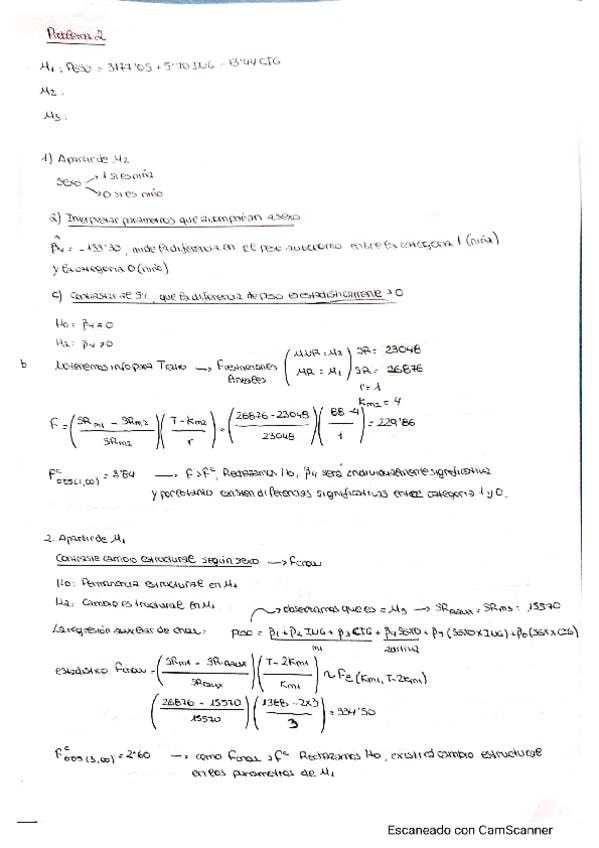 Problema 2
M1: PESO = 3177'05 + 5'70 ING - 13'44 CIG
M2:
M3:
1) Apartir de M2
sexo → 1 si es niña
→ 0 si es niño
a) Interpretar parametros que acompañan a sexo
β̂4 = -133'30, mide la diferencia en el peso autonomo entre la categoria 1 (niña)
y la categoria 0 (niño)
c) Contrastar al 5%, que la diferencia de peso es estadisticamente > 0
H0: β4 = 0
H1: β4 ≠ 0
b
info para → F restricciones lineales ( MNR: M2 ) SR = 23048
( MR: M1 ) SR = 26876
r = 1
Km2 = 4
F = (SRm1 - SRm2 / SRm2) (T - Km2 / r) = (26876 - 23048 / 23048) ( 88 - 4 / 1) = 229'86
F^c 0'05 (1,∞) = 3'84 → F > F^c, Rechazamos H0, β4 será individualmente significativa
y por lo tanto existen diferencias significativas entre categoria 1 y 0.
2. Apartir de M1
Contraste cambio estructural según sexo → Fchow
H0: Permanencia estructural en M1
Ha: Cambio estructural en M1
observamos que es = M3 → SRaux = SRm3 = 15570
La regresión auxiliar de chow: peso = β1 + β2 ING + β3 CIG + β4 SEXO + β5 (SEXO x ING) + β6 (SEXO x CIG)
m1 aditiva
estadistico Fchow = (SRm1 - SRaux / SRaux) (T - 2Km1 / Km1) ~ Fe (Km1, T - 2Km1)
(26876 - 15570 / 15570) (1388 - 2x3 / 3) = 334'50
F^c 0'05 (3,∞) = 2'60 → como Fchow > F^c Rechazamos H0, existirá cambio estructural
en los parametros de M1
Escaneado con CamScanner